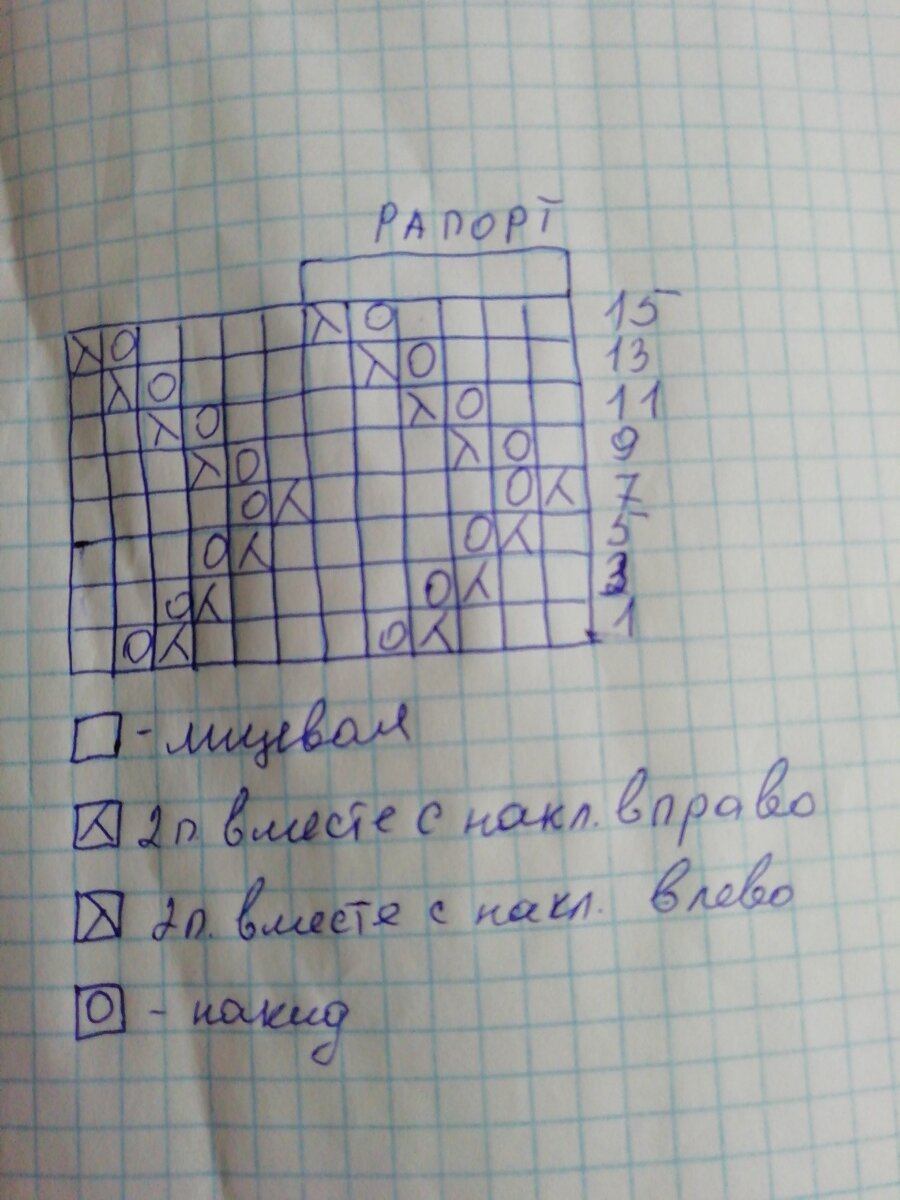 РАПОРТ
λ O λ O 15
λ O λ O 13
λ O λ O 11
λ O λ O 9
O ⅄ O ⅄ 7
O ⅄ O ⅄ 5
O ⅄ O ⅄ 3
O ⅄ O ⅄ 1
- лицевая
⅄ 2п. вместе с накл. вправо
λ 2п. вместе с накл. влево
O - накид